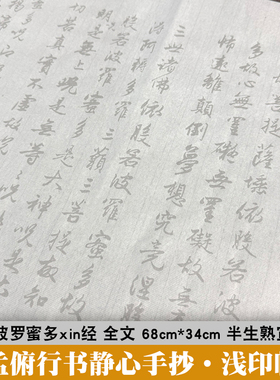 提薩埵依般
多故心無罣礙無罣礙故無
怖遠離顛倒夢想究竟涅
三世諸佛依般若波羅蜜多故
阿耨多羅三藐三菩提故知
般若波羅蜜多是大神咒
明咒是無上咒是無等等咒
切苦真實不虛故
波罗蜜多xin经 全文 68cm*34cm 半生熟宣
孟頫行书静心手抄·浅印